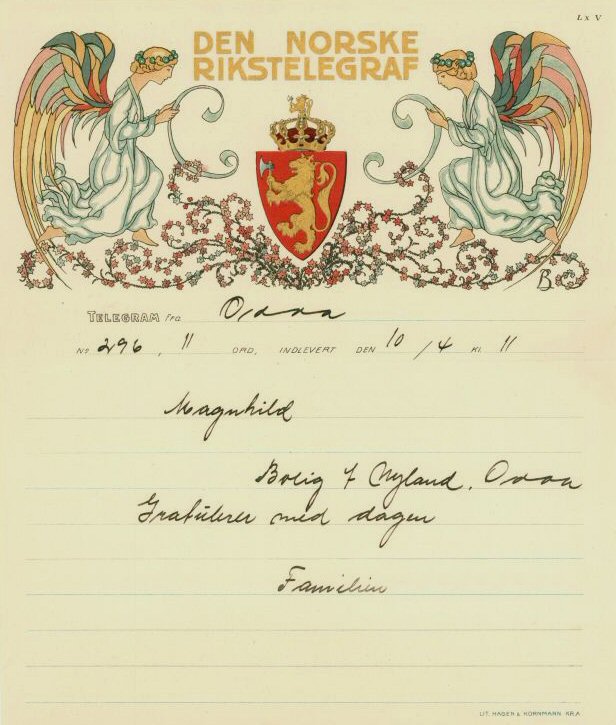 Lx V
DEN NORSKE
RIKSTELEGRAF
B
TELEGRAM fra Odda
No 296, 11 ORD, INDLEVERT DEN 10/4 Kl. 11
Magnhild
Bolig 7 Nyland, Odda
Gratulerer med dagen
Familien
LIT. HAGEN & KORNMANN. KR.A